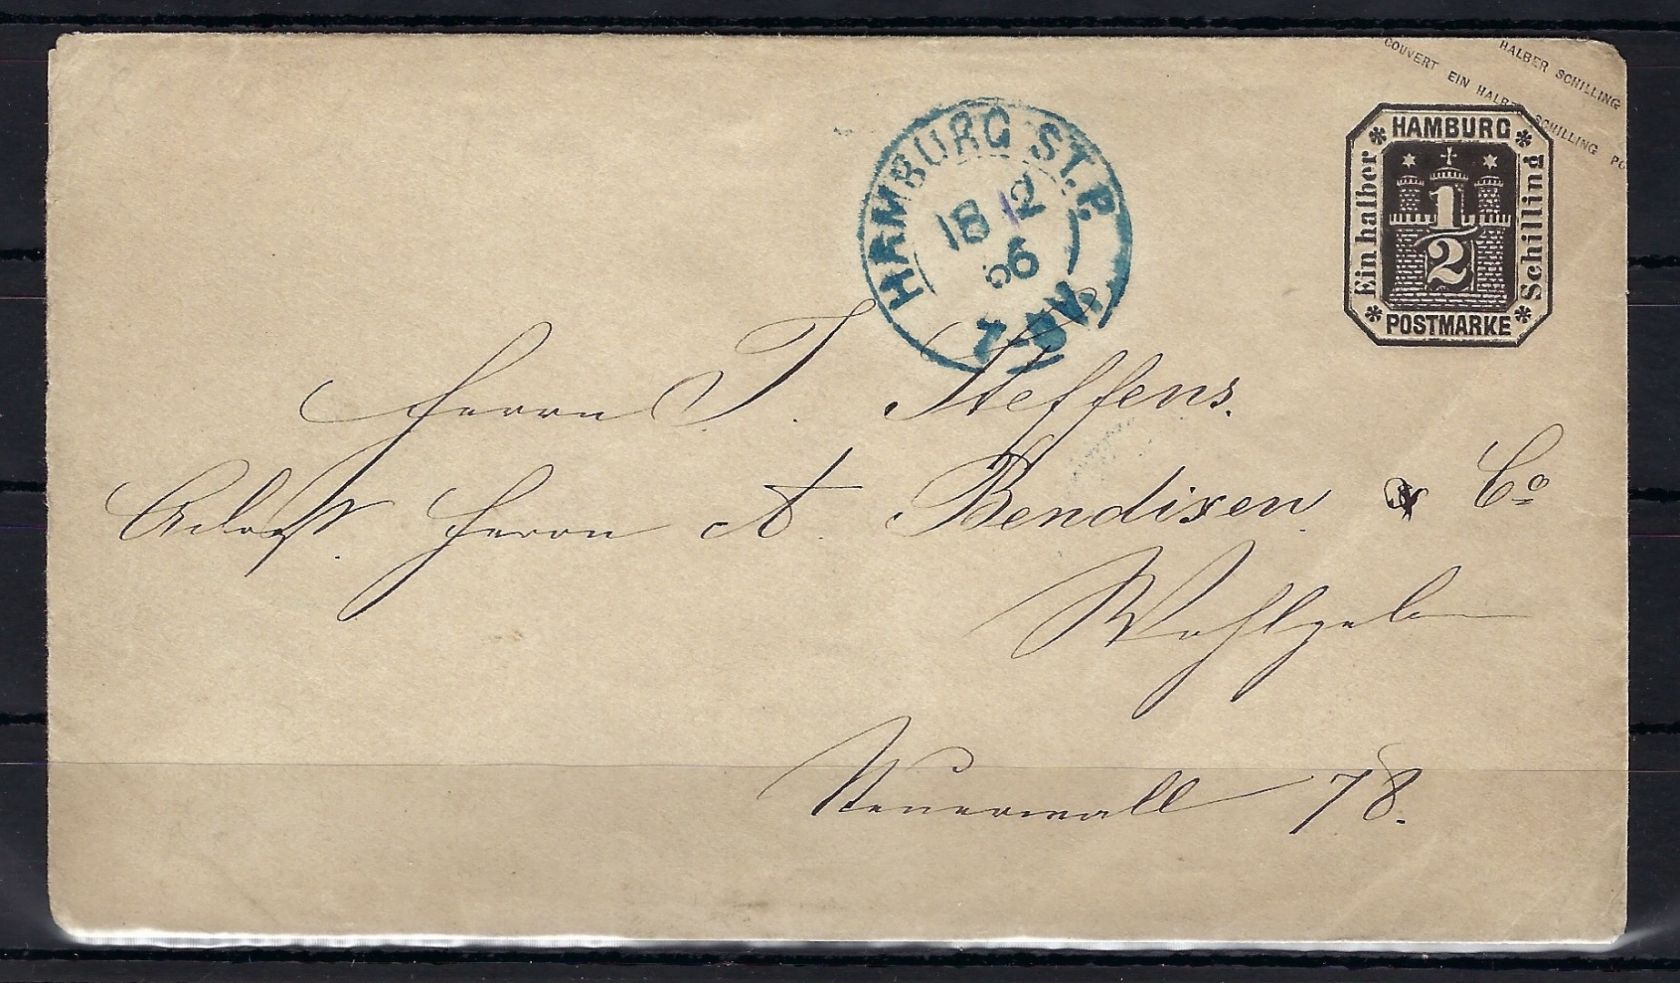 HALBER SCHILLING
COUVERT EIN HALBER SCHILLING PO
HAMBURG
Ein halber
1/2
Schilling
POSTMARKE
HAMBURG ST. P.
18 12
66
Herrn J. Steffens.
Herrn A. Bendixen & Co
Wohlgeb
Neuerwall 78.